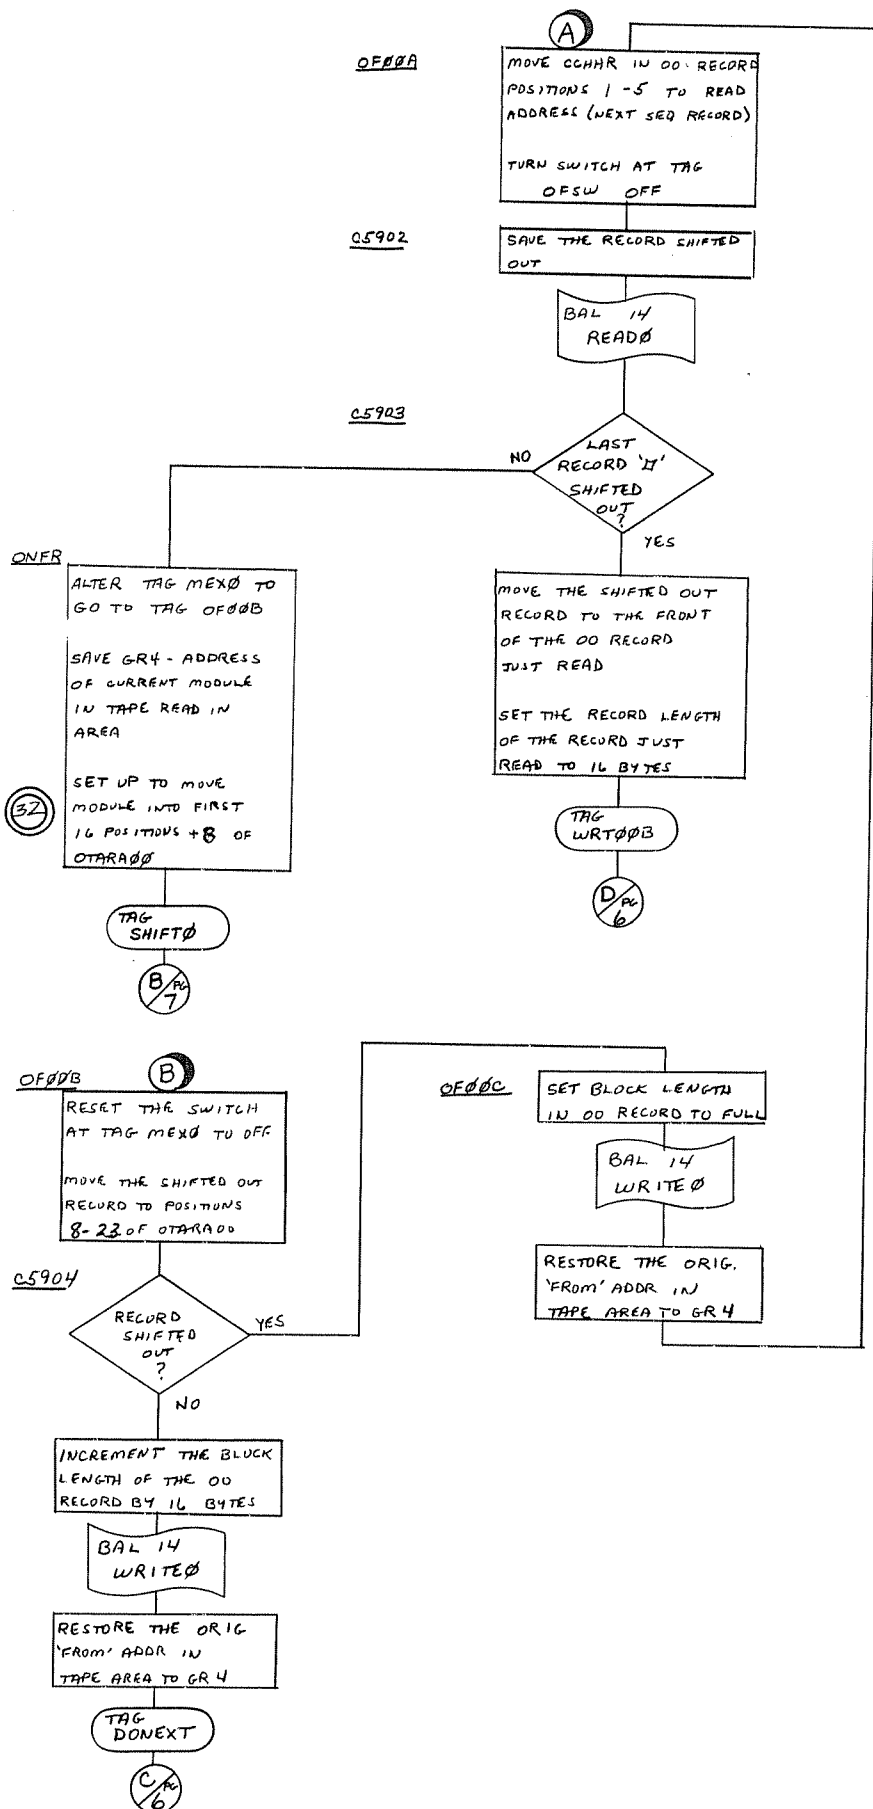 A
OFØØA
MOVE CCHHR IN 00 RECORD
POSITIONS 1-5 TO READ
ADDRESS (NEXT SEQ RECORD)
TURN SWITCH AT TAG
OFSW OFF
C5902
SAVE THE RECORD SHIFTED
OUT
BAL 14
READØ
C5903
LAST
RECORD '⌑'
SHIFTED
OUT
?
NO
YES
ONFR
ALTER TAG MEXØ TO
GO TO TAG OFØØB
SAVE GR4 - ADDRESS
OF CURRENT MODULE
IN TAPE READ IN
AREA
SET UP TO MOVE
MODULE INTO FIRST
16 POSITIONS +8 OF
OTARAØØ
32
TAG
SHIFTØ
B/PG
7
MOVE THE SHIFTED OUT
RECORD TO THE FRONT
OF THE 00 RECORD
JUST READ
SET THE RECORD LENGTH
OF THE RECORD JUST
READ TO 16 BYTES
TAG
WRTØØB
D/PG
6
OFØØB
B
RESET THE SWITCH
AT TAG MEXØ TO OFF
MOVE THE SHIFTED OUT
RECORD TO POSITIONS
8-23 OF OTARA00
C5904
RECORD
SHIFTED
OUT
?
YES
NO
INCREMENT THE BLOCK
LENGTH OF THE 00
RECORD BY 16 BYTES
BAL 14
WRITEØ
RESTORE THE ORIG
'FROM' ADDR IN
TAPE AREA TO GR 4
TAG
DONEXT
C/PG
6
OFØØC
SET BLOCK LENGTH
IN 00 RECORD TO FULL
BAL 14
WRITEØ
RESTORE THE ORIG.
'FROM' ADDR IN
TAPE AREA TO GR 4